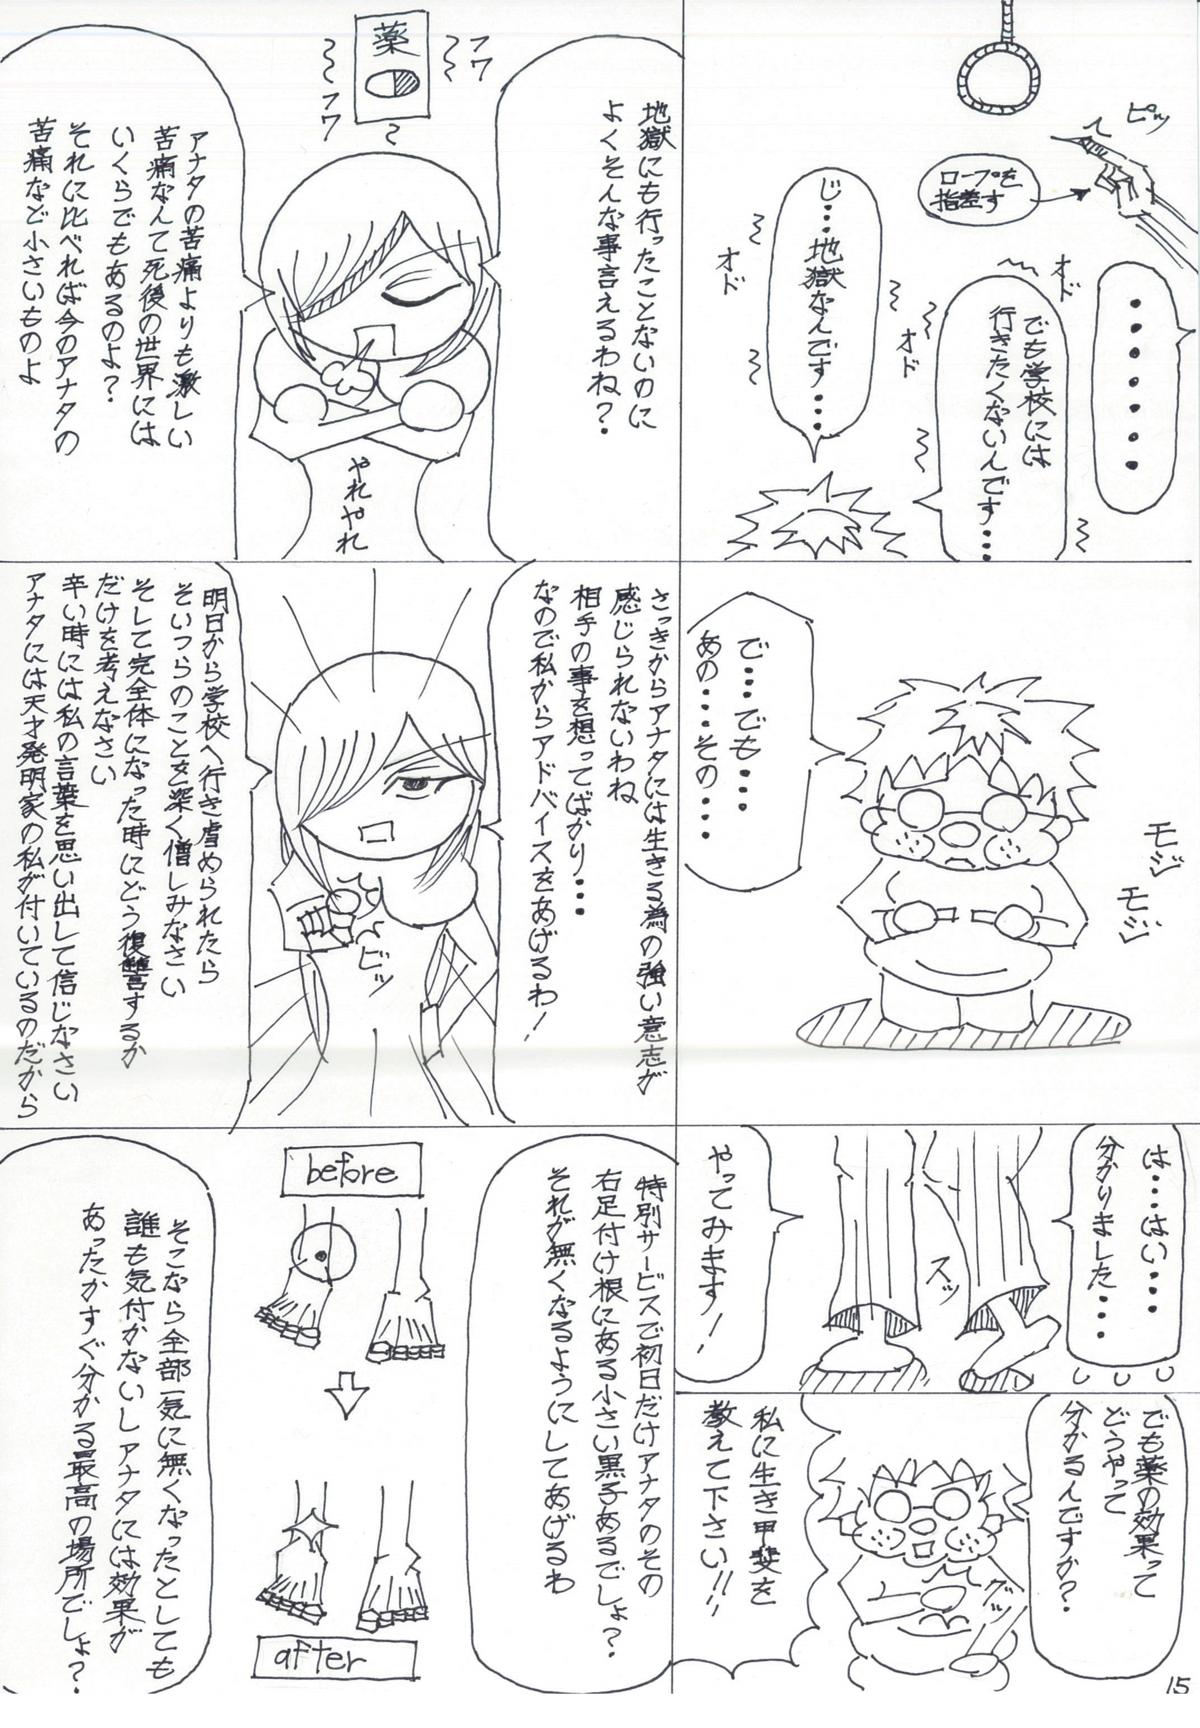 ピッ
ロープを
指差す
・・・・・・・
オド
オド
でも学校には
行きたくないんです・・・
じ・・・地獄なんです・・・・
オド
地獄にも行ったことないのに
よくそんな事言えるわね?
薬
フワ
フワ
やれやれ
アナタの苦痛よりも激しい
苦痛なんて死後の世界には
いくらでもあるのよ?
それに比べれば今のアナタの
苦痛など小さいものよ
で・・・でも・・・・
あの・・・・その・・・・
モジ
モジ
さっきからアナタには生きる為の強い意志が
感じられないわね
相手の事を想ってばかり・・・
なので私からアドバイスをあげるわ!
ビッ
明日から学校へ行き虐められたら
そいつらのことを深く憎しみなさい
そして完全体になった時にどう復讐するか
だけを考えなさい
辛い時には私の言葉を思い出して信じなさい
アナタには天才発明家の私が付いているのだから
は・・・はい・・・
分かりました・・・・
スッ
やってみます!
でも薬の効果って
どうやって
分かるんですか?
グッ
私に生き甲斐を
教えて下さい!!!
特別サービスで初日だけアナタのその
右足付け根にある小さい黒子あるでしょ?
それが無くなるようにしてあげるわ
before
after
そこなら全部一気に無くなったとしても
誰も気付かないしアナタには効果が
あったかすぐ分かる最高の場所でしょ?
15